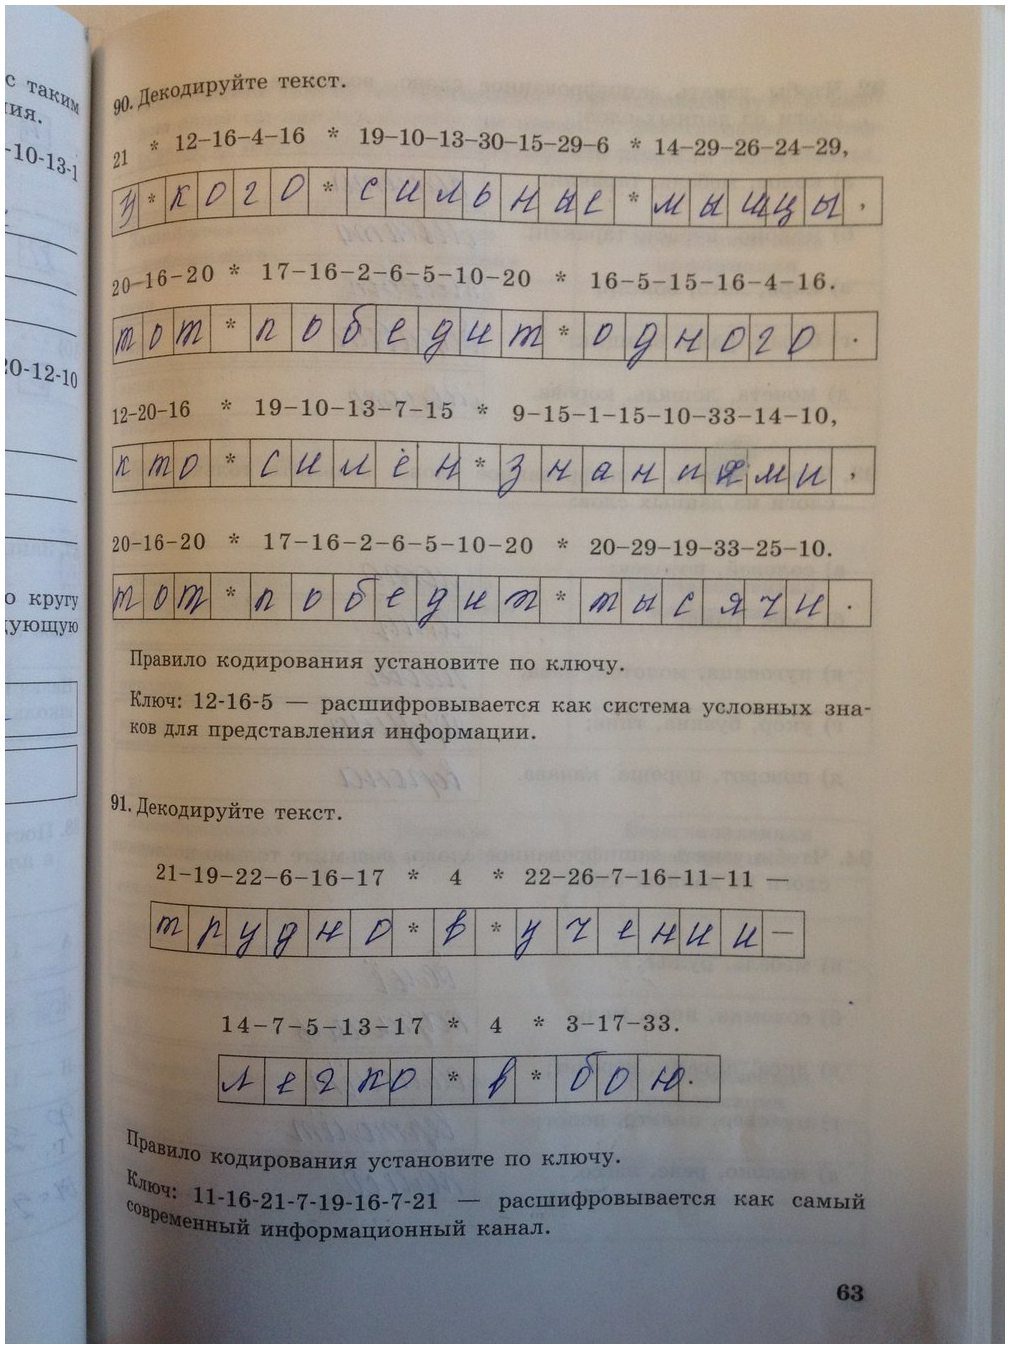 с таким
ия.
-10-13-1
20-12-10
о кругу
дующую
90. Декодируйте текст.
21 * 12–16–4–16 * 19–10–13–30–15–29–6 * 14–29–26–24–29,
у * кого * сильные * мышцы ,
20–16–20 * 17–16–2–6–5–10–20 * 16–5–15–16–4–16.
тот * победит * одного .
12–20–16 * 19–10–13–7–15 * 9–15–1–15–10–33–14–10,
кто * силён * знаниями ,
20–16–20 * 17–16–2–6–5–10–20 * 20–29–19–33–25–10.
тот * победит * тысячи .
Правило кодирования установите по ключу.
Ключ: 12-16-5 — расшифровывается как система условных зна-
ков для представления информации.
91. Декодируйте текст.
21–19–22–6–16–17 * 4 * 22–26–7–16–11–11 —
трудно * в * учении —
14–7–5–13–17 * 4 * 3–17–33.
легко * в * бою .
Правило кодирования установите по ключу.
Ключ: 11-16-21-7-19-16-7-21 — расшифровывается как самый
современный информационный канал.
63